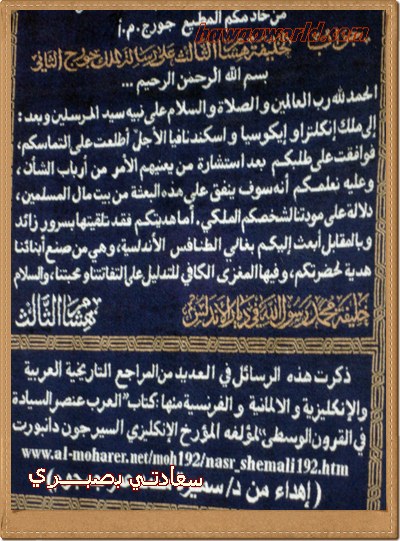 من خادمكم المطيع جورج.م.أ
hawaaworld.com
جواب خليفة هشام الثالث على رسالة الملك جورج الثاني
بسم الله الرحمن الرحيم ...
الحمد لله رب العالمين و الصلاة و السلام على نبيه سيد المرسلين وبعد :
إلى ملك إنكلترا و إيكوسيا و اسكندنافيا الأجل اطلعت على التماسكم،
فوافقت على طلبكم بعد استشارة من يعنيهم الأمر من أرباب الشأن ،
وعليه نعلمكم أنه سوف ينفق على هذه البعثة من بيت مال المسلمين،
دلالة على مودتنا لشخصكم الملكي، أما هديتكم فقد تلقيتها بسرور زائد
و بالمقابل أبعث إليكم بغالي الطنافس الأندلسية، وهي من صنع أبنائنا
هدية لحضرتكم ، وفيها المغزى الكافي للتدليل على التفاتتنا و محبتنا، والسلام
خليفة محمد رسول الله في ديار الأندلس
هشام الثالث
ذكرت هذه الرسائل في العديد من المراجع التاريخية العربية
والإنكليزية و الالمانية و الفرنسية منها : كتاب "العرب عنصر السيادة
في القرون الوسطى" لمؤلفه المؤرخ الإنكليزي السير جون دانبورت
www.al-moharer.net/moh192/nasr_shemali192.htm
سعادتي بصبري
( إهداء من د/ سميرة